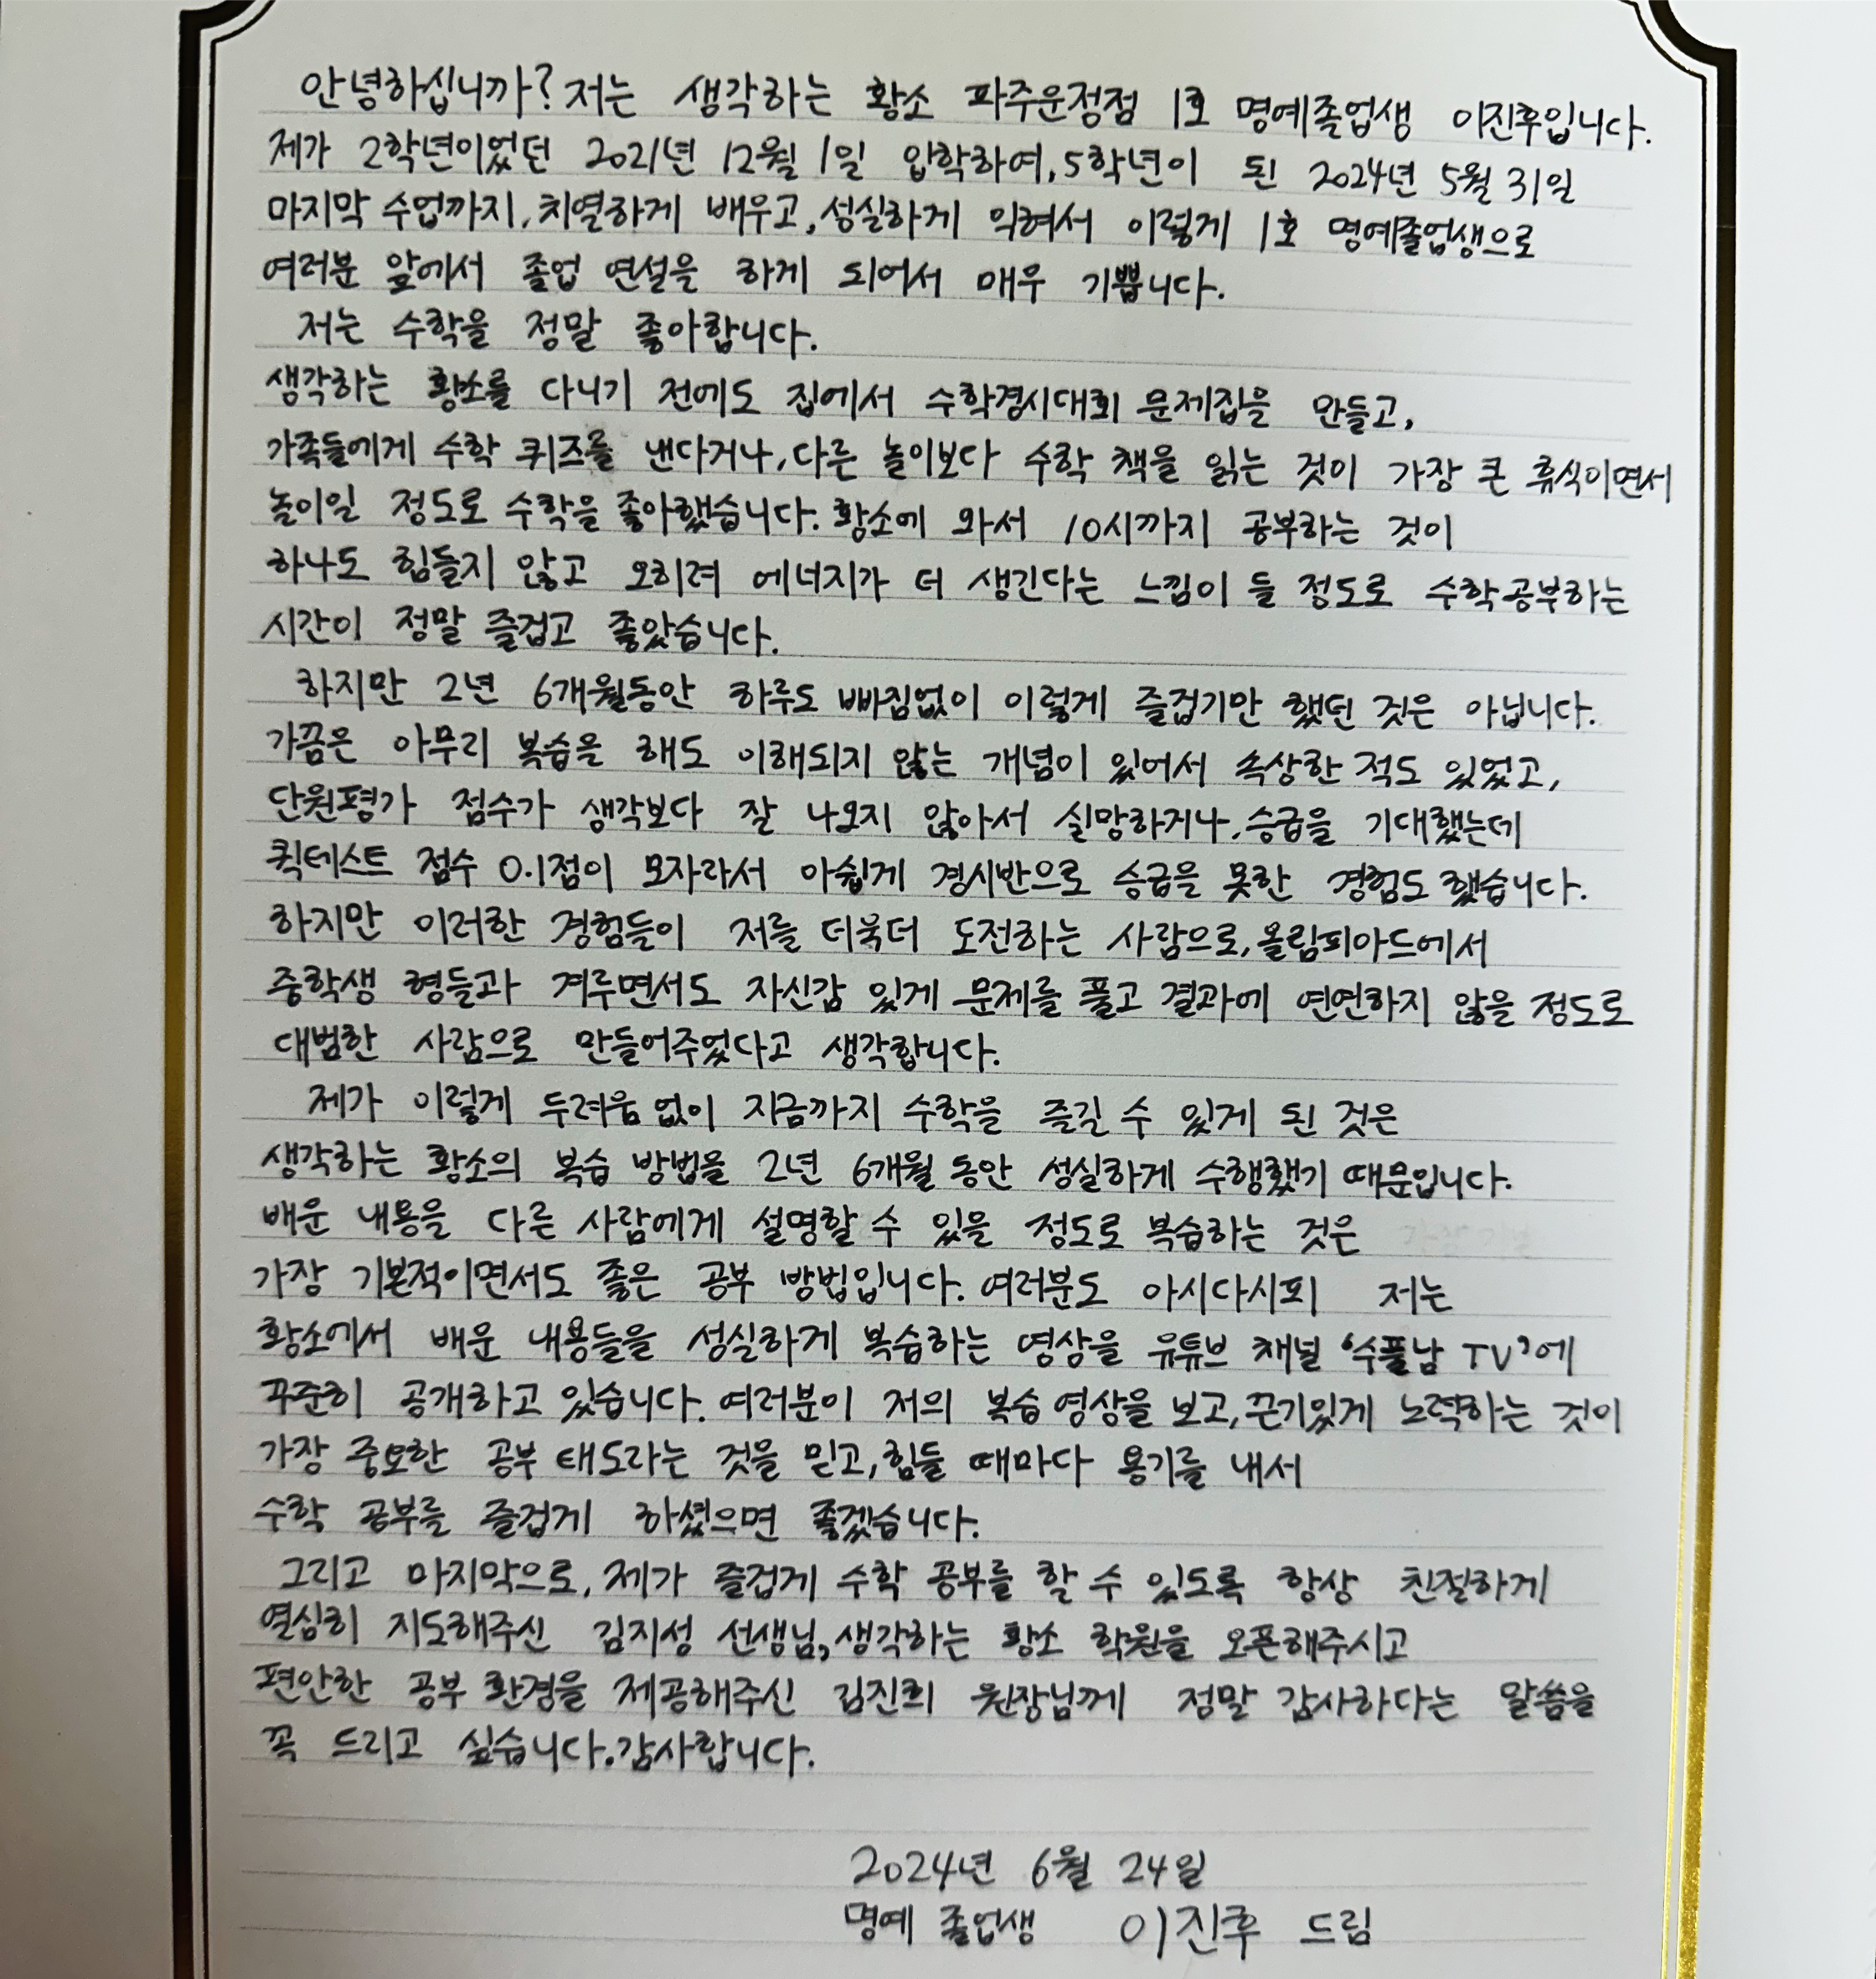 안녕하십니까? 저는 생각하는 황소 파주운정점 1호 명예졸업생 이진후입니다.
제가 2학년이었던 2021년 12월 1일 입학하여, 5학년이 된 2024년 5월 31일
마지막 수업까지, 치열하게 배우고, 성실하게 익혀서 이렇게 1호 명예졸업생으로
여러분 앞에서 졸업 연설을 하게 되어서 매우 기쁩니다.
저는 수학을 정말 좋아합니다.
생각하는 황소를 다니기 전에도 집에서 수학경시대회 문제집을 만들고,
가족들에게 수학 퀴즈를 낸다거나, 다른 놀이보다 수학 책을 읽는 것이 가장 큰 휴식이면서
놀이일 정도로 수학을 좋아했습니다. 황소에 와서 10시까지 공부하는 것이
하나도 힘들지 않고 오히려 에너지가 더 생긴다는 느낌이 들 정도로 수학공부하는
시간이 정말 즐겁고 좋았습니다.
하지만 2년 6개월동안 하루도 빠짐없이 이렇게 즐겁기만 했던 것은 아닙니다.
가끔은 아무리 복습을 해도 이해되지 않는 개념이 있어서 속상한 적도 있었고,
단원평가 점수가 생각보다 잘 나오지 않아서 실망하거나, 승급을 기대했는데
퀵테스트 점수 0.1점이 모자라서 아쉽게 경시반으로 승급을 못한 경험도 했습니다.
하지만 이러한 경험들이 저를 더욱더 도전하는 사람으로, 올림피아드에서
중학생 형들과 겨루면서도 자신감 있게 문제를 풀고 결과에 연연하지 않을 정도로
대범한 사람으로 만들어주었다고 생각합니다.
제가 이렇게 두려움 없이 지금까지 수학을 즐길 수 있게 된 것은
생각하는 황소의 복습 방법을 2년 6개월 동안 성실하게 수행했기 때문입니다.
배운 내용을 다른 사람에게 설명할 수 있을 정도로 복습하는 것은
가장 기본적이면서도 좋은 공부 방법입니다. 여러분도 아시다시피 저는
황소에서 배운 내용들을 성실하게 복습하는 영상을 유튜브 채널 '수풀남 TV'에
꾸준히 공개하고 있습니다. 여러분이 저의 복습 영상을 보고, 끈기있게 노력하는 것이
가장 중요한 공부 태도라는 것을 믿고, 힘들 때마다 용기를 내서
수학 공부를 즐겁게 하셨으면 좋겠습니다.
그리고 마지막으로, 제가 즐겁게 수학 공부를 할 수 있도록 항상 친절하게
열심히 지도해주신 김지성 선생님, 생각하는 황소 학원을 오픈해주시고
편안한 공부 환경을 제공해주신 김진희 원장님께 정말 감사하다는 말씀을
꼭 드리고 싶습니다. 감사합니다.
2024년 6월 24일
명예 졸업생 이진후 드림